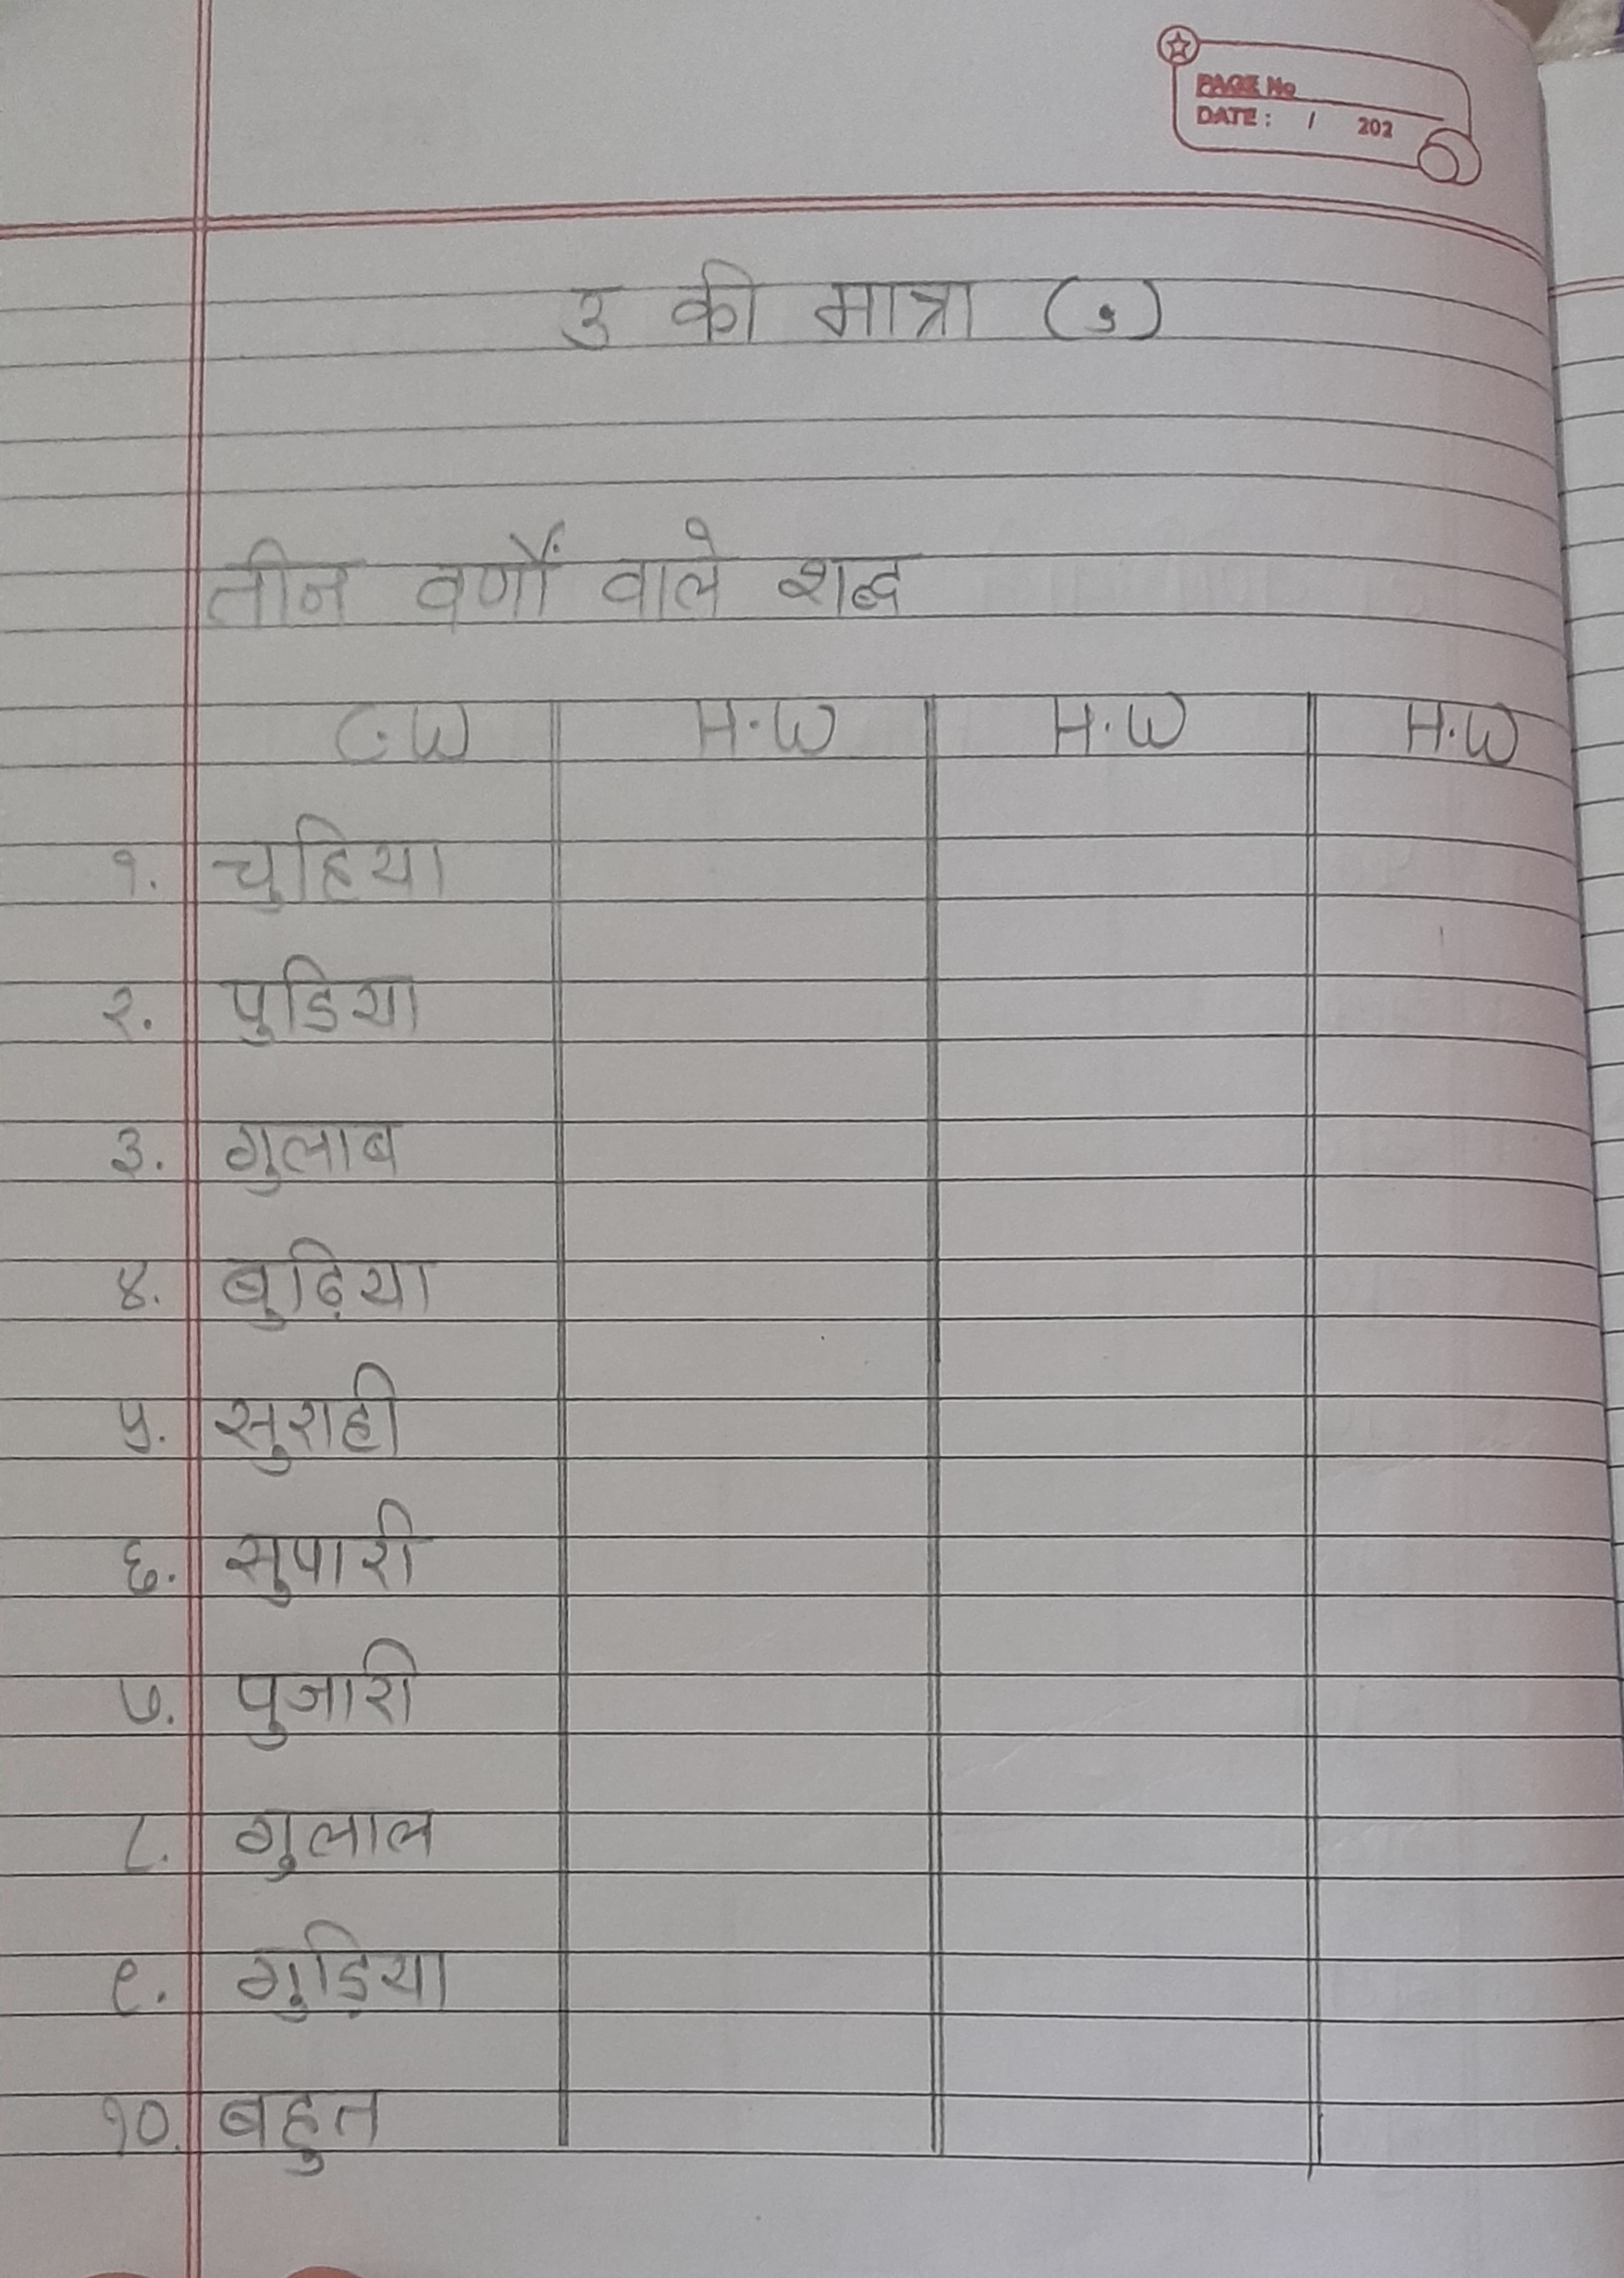 PAGE No
DATE : / 202
उ की मात्रा (ु)
तीन वर्णों वाले शब्द
C.W H.W H.W H.W
१. चुहिया
२. पुडिया
३. गुलाब
४. बुढ़िया
५. सुराही
६. सुपारी
७. पुजारी
८. गुलाल
९. गुड़िया
१०. बहुत